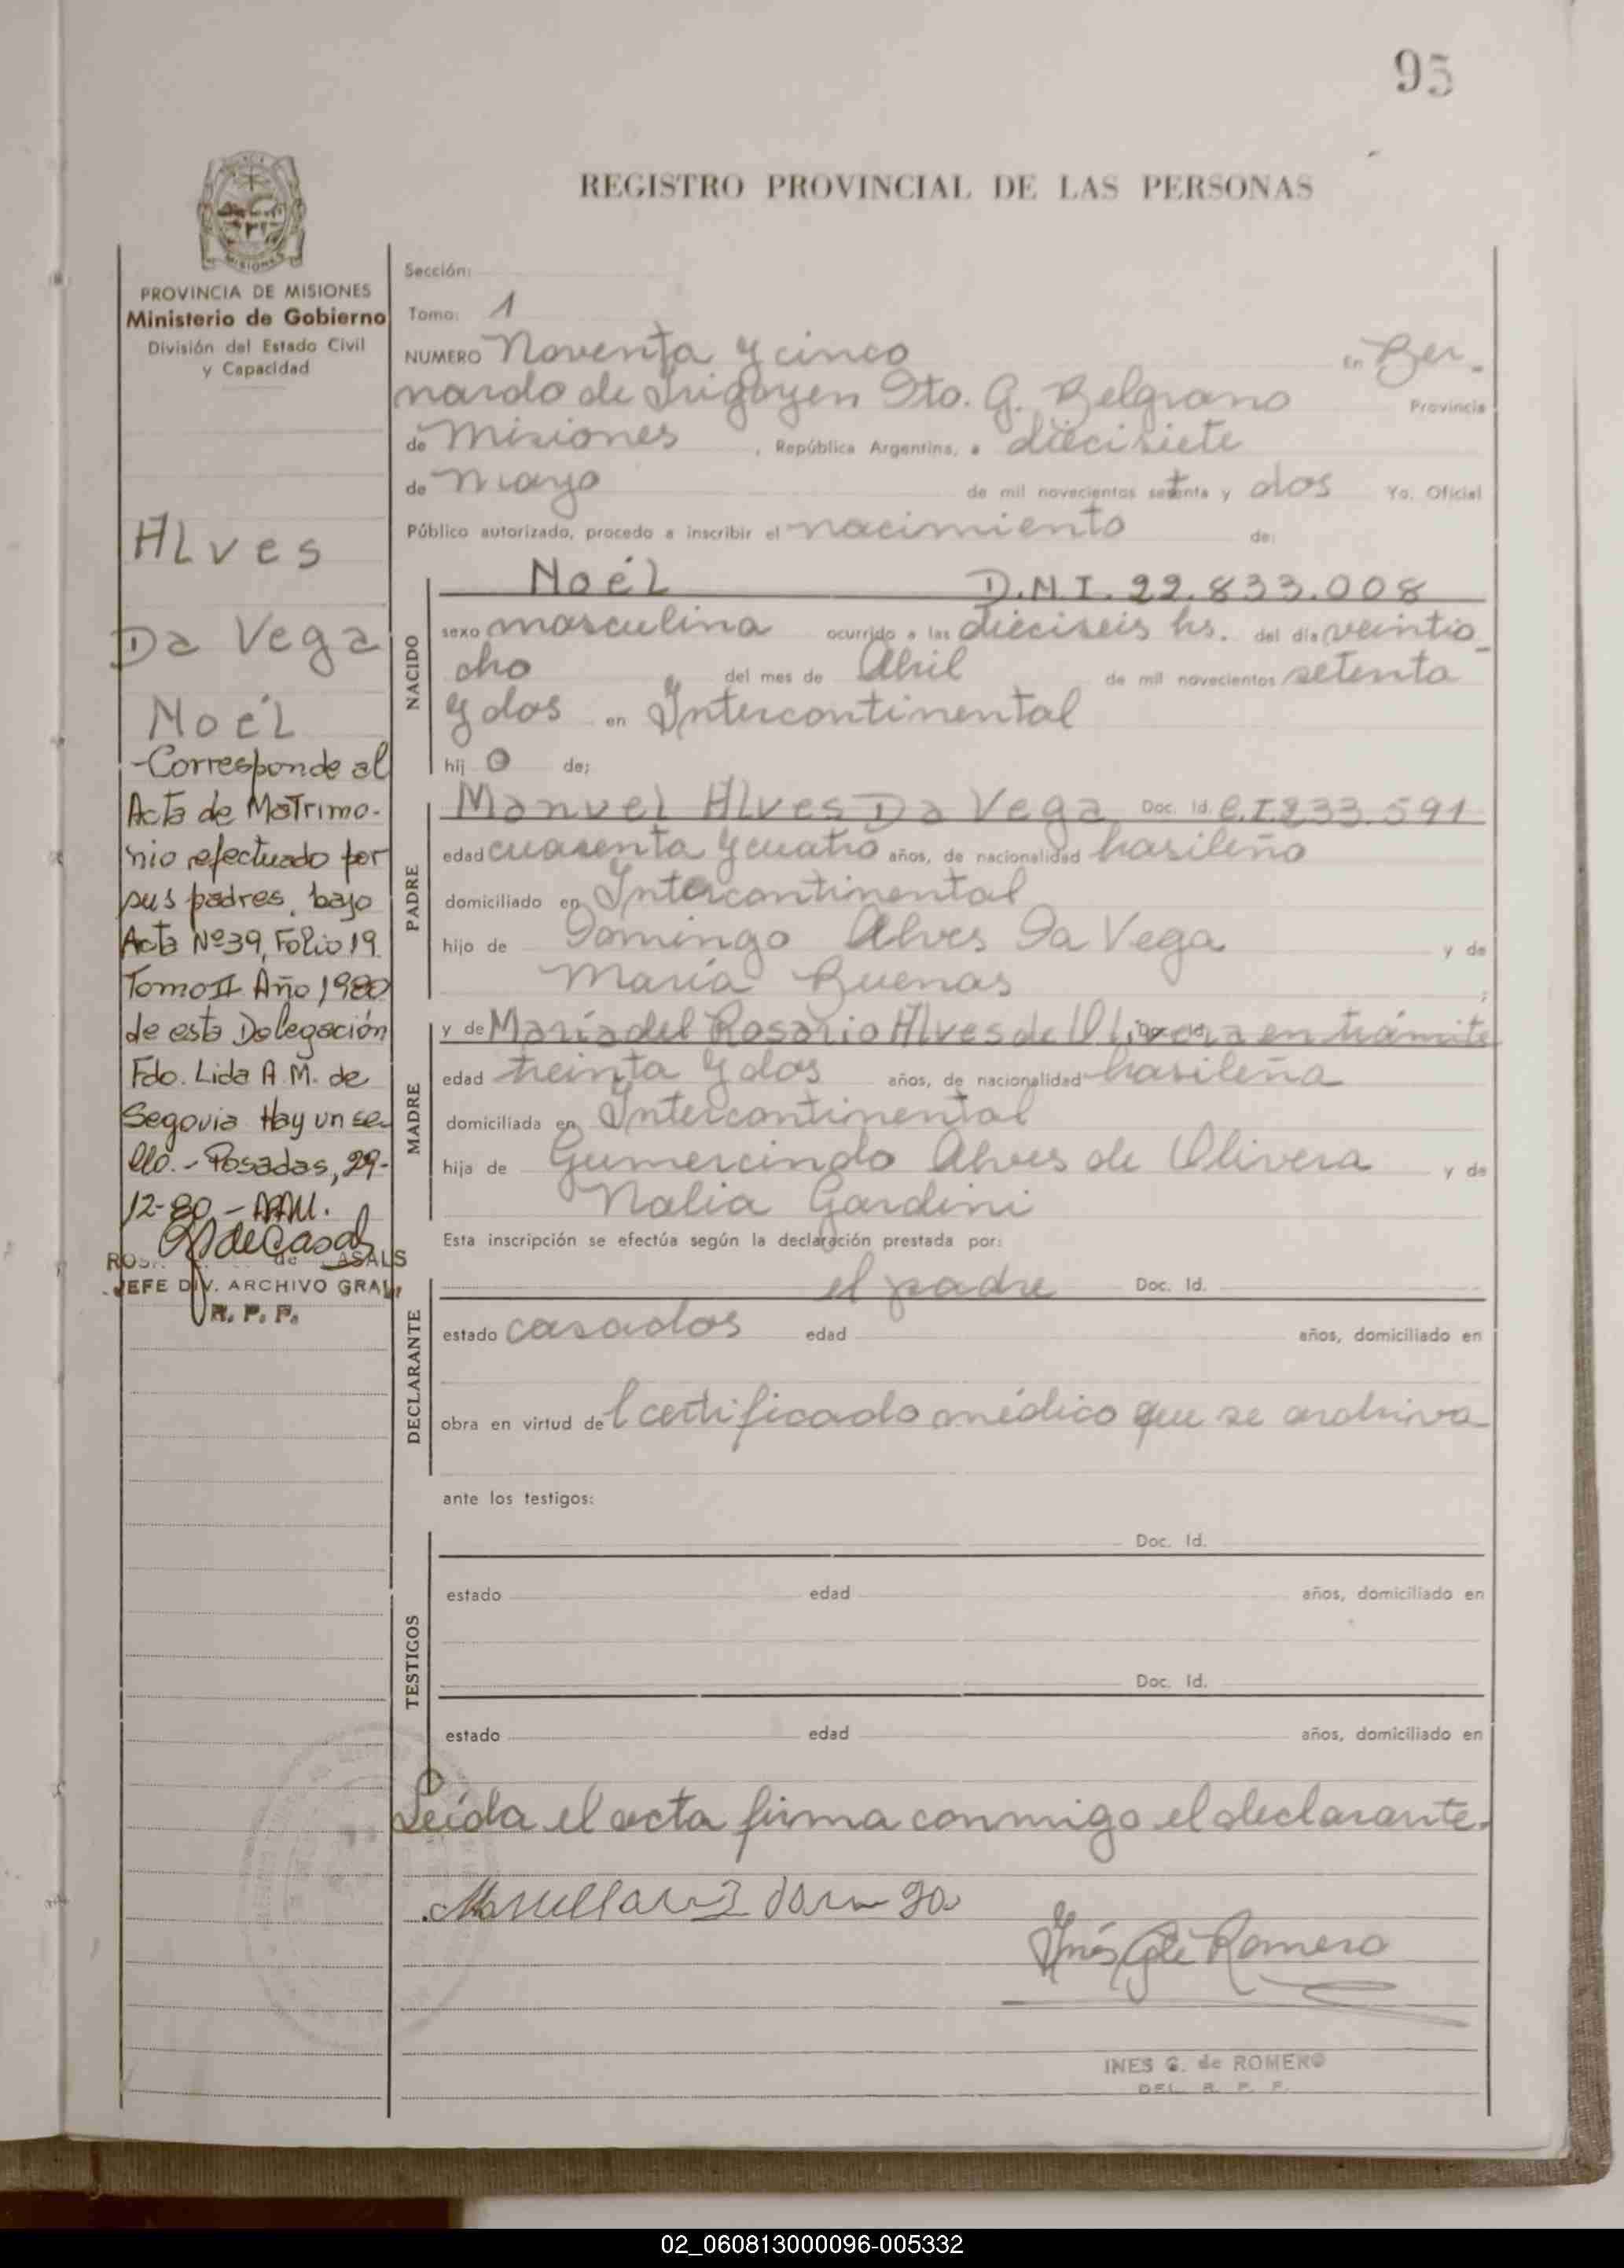 95
REGISTRO PROVINCIAL DE LAS PERSONAS
MISIONES
PROVINCIA DE MISIONES
Ministerio de Gobierno
División del Estado Civil
y Capacidad
Alves
Da Vega
Noél
-Corresponde al
Acta de Matrimo-
nio efectuado por
sus padres, bajo
Acta Nº39, Folio 19
Tomo II Año 1980
de esta Delegación
Fdo. Lida A.M. de
Segovia Hay un se-
llo.- Posadas, 29-
12-80
JEFE DIV. ARCHIVO GRAL.
R. P. P.
Sección:
Tomo: 1
NUMERO Noventa y cinco en Ber-
nardo de Irigoyen Dto. G. Belgrano Provincia
de Misiones, República Argentina, a diecisiete
de mayo de mil novecientos setenta y dos Yo. Oficial
Público autorizado, procedo a inscribir el nacimiento de:
NACIDO
Noél D.N.I. 22.833.008
sexo masculina ocurrido a las dieciseis hs. del día veintio-
cho del mes de Abril de mil novecientos setenta
y dos en Intercontinental
hij o de;
PADRE
Manuel Alves Da Vega Doc. Id. C.I.233.591
edad cuarenta y cuatro años, de nacionalidad brasileño
domiciliado en Intercontinental
hijo de Domingo Alves Da Vega y de
María Buenas ;
MADRE
y de María del Rosario Alves de Olivera Doc. Id. en trámite
edad treinta y dos años, de nacionalidad brasileña
domiciliada en Intercontinental
hija de Gumercindo Alves de Olivera y de
Nalia Gardini
Esta inscripción se efectúa según la declaración prestada por:
DECLARANTE
el padre Doc. Id.
estado casados edad años, domiciliado en
obra en virtud del certificado médico que se archiva
ante los testigos:
TESTIGOS
Doc. Id.
estado edad años, domiciliado en
Doc. Id.
estado edad años, domiciliado en
Leída el acta firma conmigo el declarante.
Inés G. de Romero
INES G. de ROMERO
DEL. R. P. P.
02_060813000096-005332